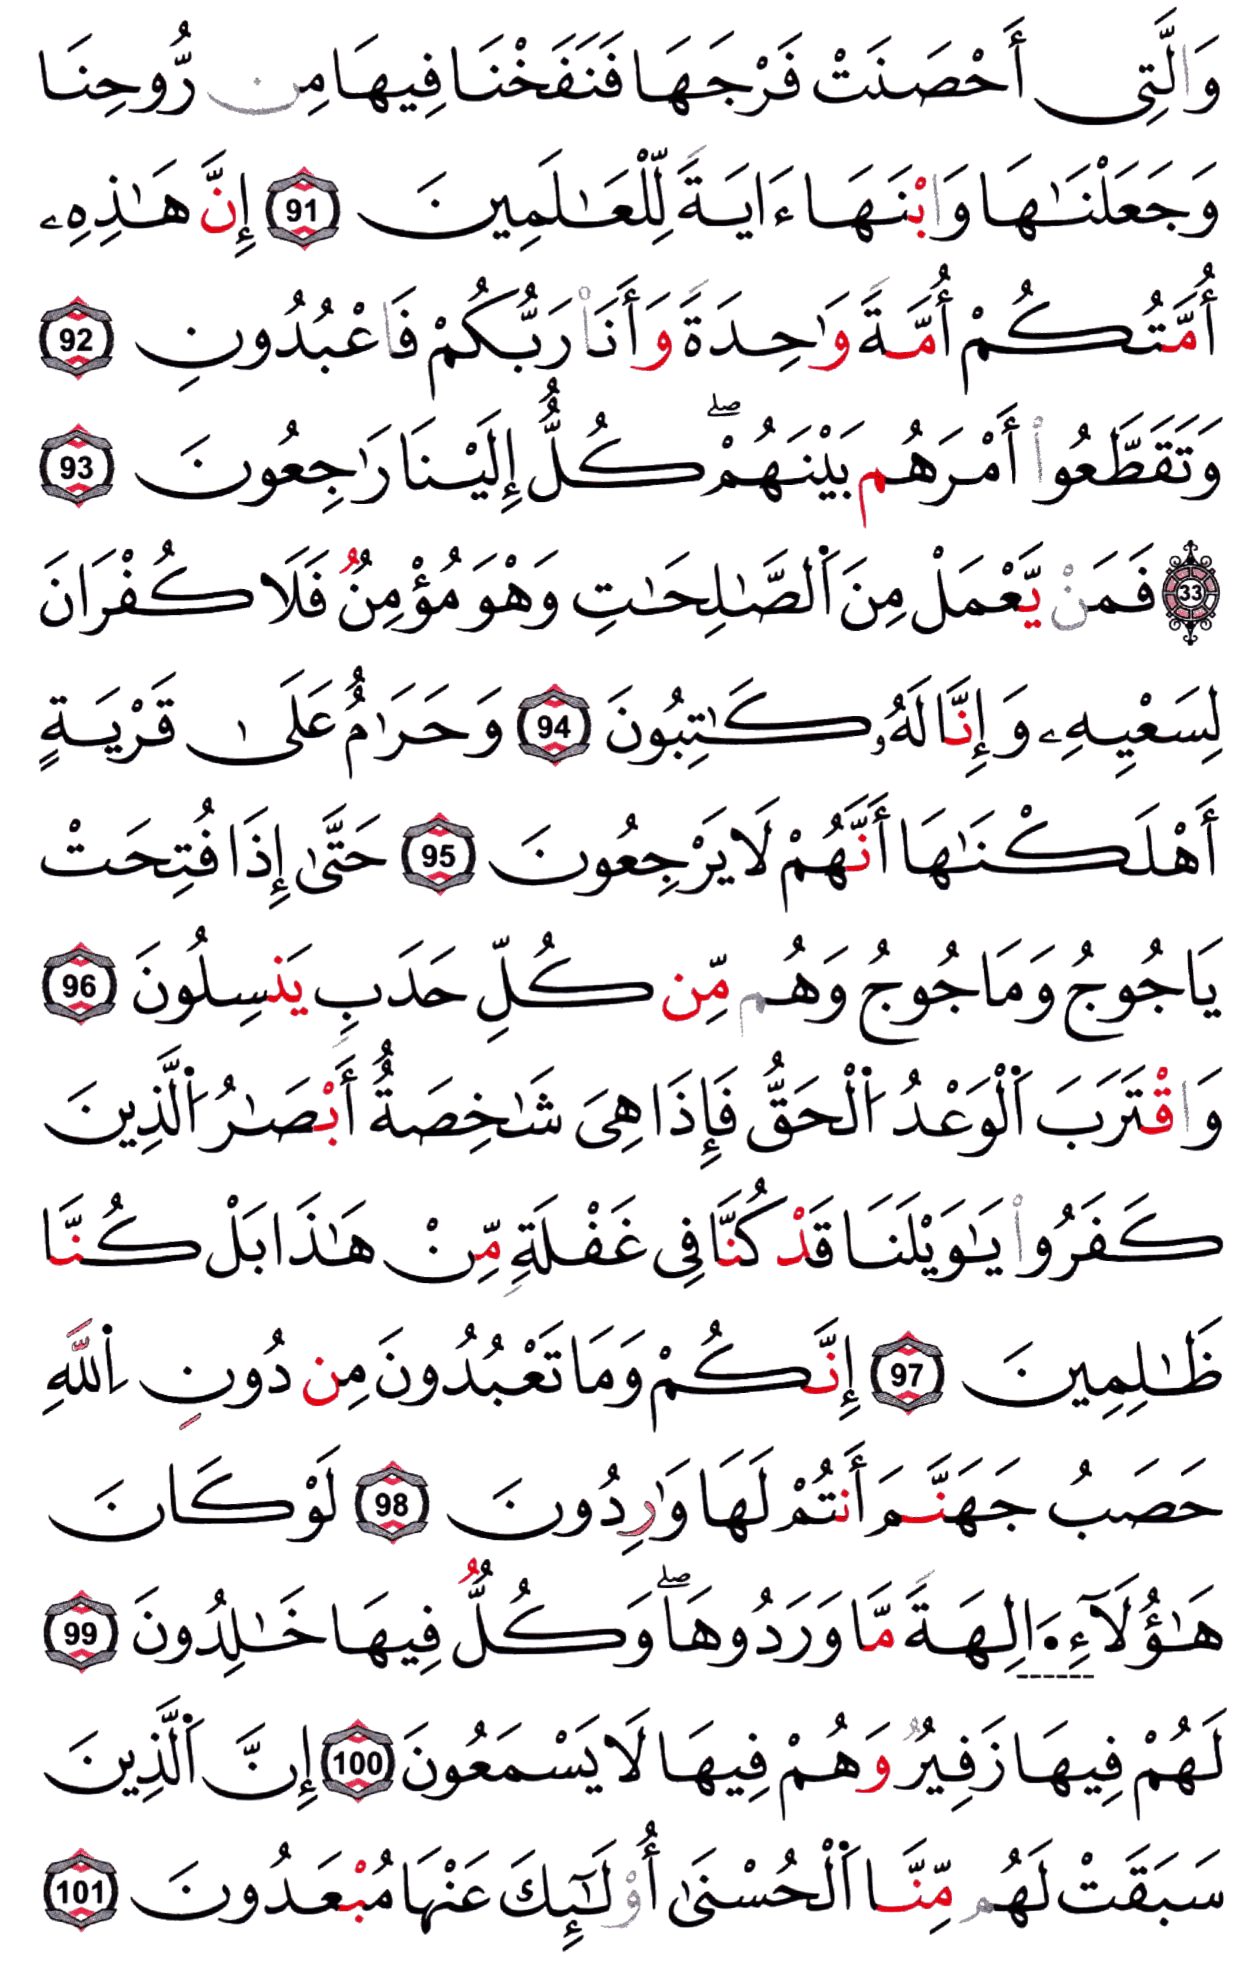 وَالَّتِى أَحْصَنَتْ فَرْجَهَا فَنَفَخْنَا فِيهَا مِن رُّوحِنَا
وَجَعَلْنَٰهَا وَابْنَهَا ءَايَةً لِّلْعَٰلَمِينَ 91 إِنَّ هَٰذِهِۦ
أُمَّتُكُمْ أُمَّةً وَٰحِدَةً وَأَنَا۠ رَبُّكُمْ فَاعْبُدُونِ 92
وَتَقَطَّعُوا۟ أَمْرَهُم بَيْنَهُمْۖ كُلٌّ إِلَيْنَا رَٰجِعُونَ 93
33 فَمَنْ يَّعْمَلْ مِنَ اَ۬لصَّٰلِحَٰتِ وَهْوَ مُؤْمِنٌ فَلَا كُفْرَانَ
لِسَعْيِهِۦ وَإِنَّا لَهُۥ كَٰتِبُونَ 94 وَحَرَٰمٌ عَلَىٰ قَرْيَةٍ
أَهْلَكْنَٰهَا أَنَّهُمْ لَا يَرْجِعُونَ 95 حَتَّىٰ إِذَا فُتِحَتْ
يَاجُوجُ وَمَاجُوجُ وَهُم مِّن كُلِّ حَدَبٍ يَنسِلُونَ 96
وَاقْتَرَبَ اَ۬لْوَعْدُ اُ۬لْحَقُّ فَإِذَا هِىَ شَٰخِصَةٌ أَبْصَٰرُ اُ۬لَّذِينَ
كَفَرُوا۟ يَٰوَيْلَنَا قَدْ كُنَّا فِى غَفْلَةٍ مِّنْ هَٰذَا بَلْ كُنَّا
ظَٰلِمِينَ 97 إِنَّكُمْ وَمَا تَعْبُدُونَ مِن دُونِ اِ۬للَّهِ
حَصَبُ جَهَنَّمَ أَنتُمْ لَهَا وَٰرِدُونَ 98 لَوْ كَانَ
هَٰؤُلَآءِ اٰ۬لِهَةً مَّا وَرَدُوهَاۖ وَكُلٌّ فِيهَا خَٰلِدُونَ 99
لَهُمْ فِيهَا زَفِيرٌ وَهُمْ فِيهَا لَا يَسْمَعُونَ 100 إِنَّ اَ۬لَّذِينَ
سَبَقَتْ لَهُم مِّنَّا اَ۬لْحُسْنَىٰ أُوْلَٰٓئِكَ عَنْهَا مُبْعَدُونَ 101